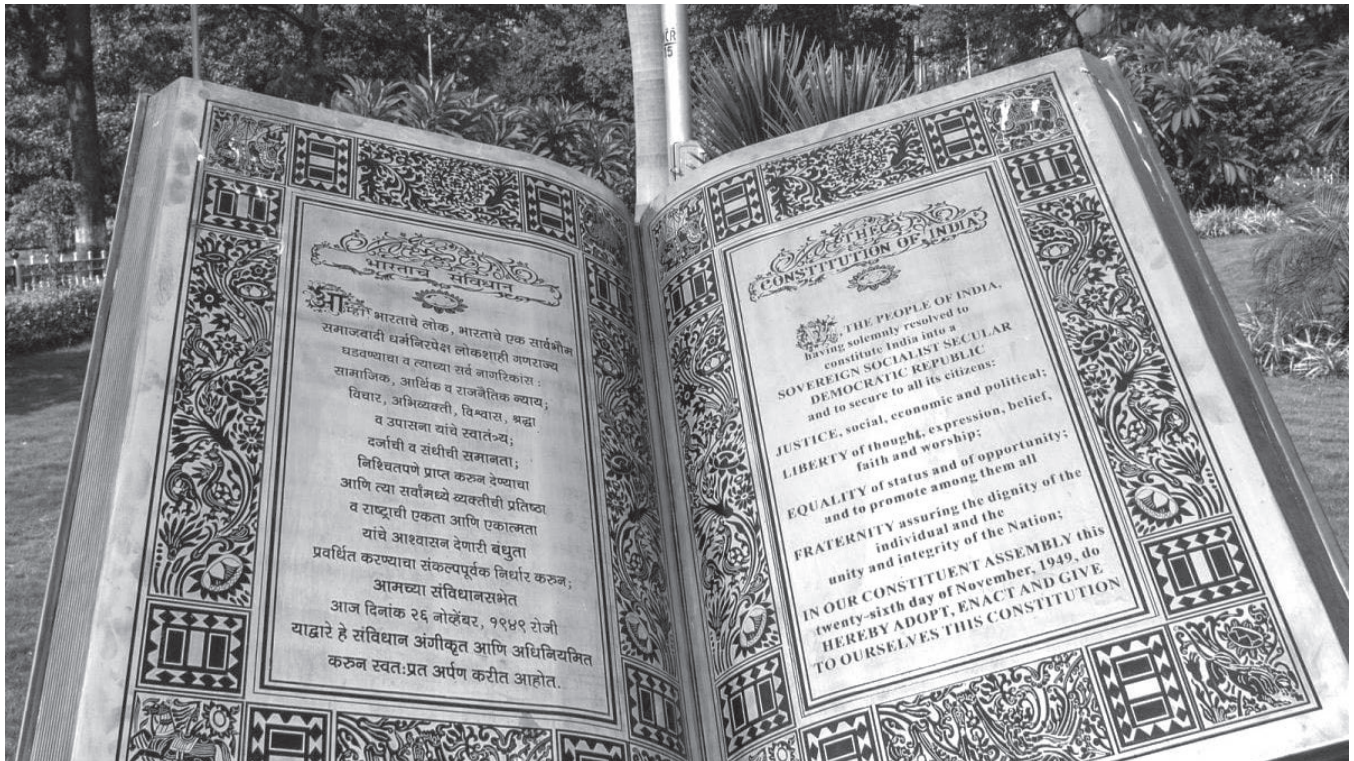 भारताचे संविधान
आम्ही भारताचे लोक, भारताचे एक सार्वभौम
समाजवादी धर्मनिरपेक्ष लोकशाही गणराज्य
घडवण्याचा व त्याच्या सर्व नागरिकांस :
सामाजिक, आर्थिक व राजनैतिक न्याय;
विचार, अभिव्यक्ती, विश्वास, श्रद्धा
व उपासना यांचे स्वातंत्र्य;
दर्जाची व संधीची समानता;
निश्चितपणे प्राप्त करुन देण्याचा
आणि त्या सर्वांमध्ये व्यक्तीची प्रतिष्ठा
व राष्ट्राची एकता आणि एकात्मता
यांचे आश्वासन देणारी बंधुता
प्रवर्धित करण्याचा संकल्पपूर्वक निर्धार करुन;
आमच्या संविधानसभेत
आज दिनांक २६ नोव्हेंबर, १९४९ रोजी
याद्वारे हे संविधान अंगीकृत आणि अधिनियमित
करुन स्वत:प्रत अर्पण करीत आहोत.
THE
CONSTITUTION OF INDIA
, THE PEOPLE OF INDIA,
having solemnly resolved to
constitute India into a
SOVEREIGN SOCIALIST SECULAR
DEMOCRATIC REPUBLIC
and to secure to all its citizens:
JUSTICE, social, economic and political;
LIBERTY of thought, expression, belief,
faith and worship;
EQUALITY of status and of opportunity;
and to promote among them all
FRATERNITY assuring the dignity of the
individual and the
unity and integrity of the Nation;
IN OUR CONSTITUENT ASSEMBLY this
twenty-sixth day of November, 1949, do
HEREBY ADOPT, ENACT AND GIVE
TO OURSELVES THIS CONSTITUTION